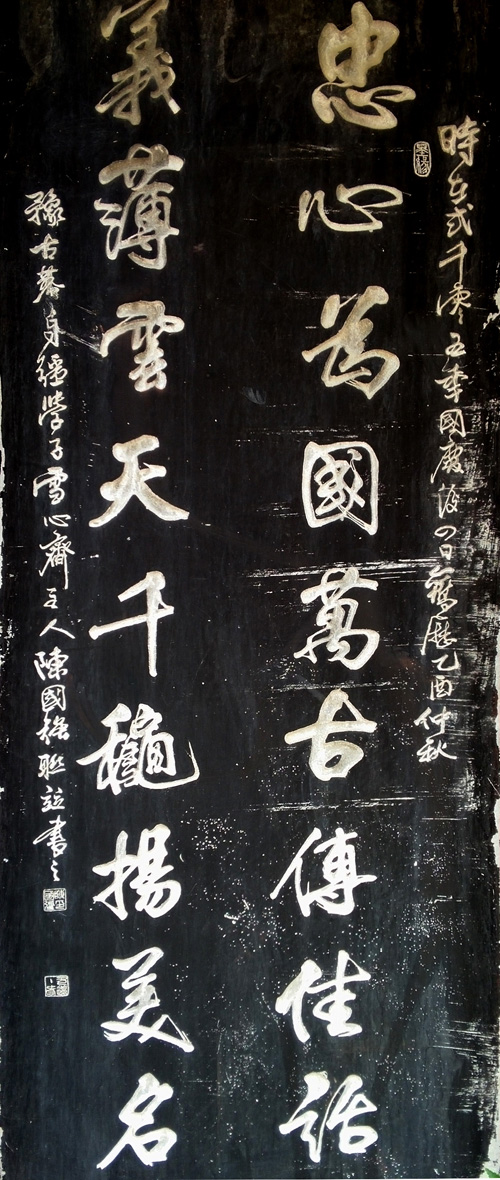 時在弍千零五季國慶後四日舊曆乙酉仲秋
忠心為國萬古傳佳話
義薄雲天千穐揚美名
豫古蔡身經學子雪心齋主人陳國強聯並書之